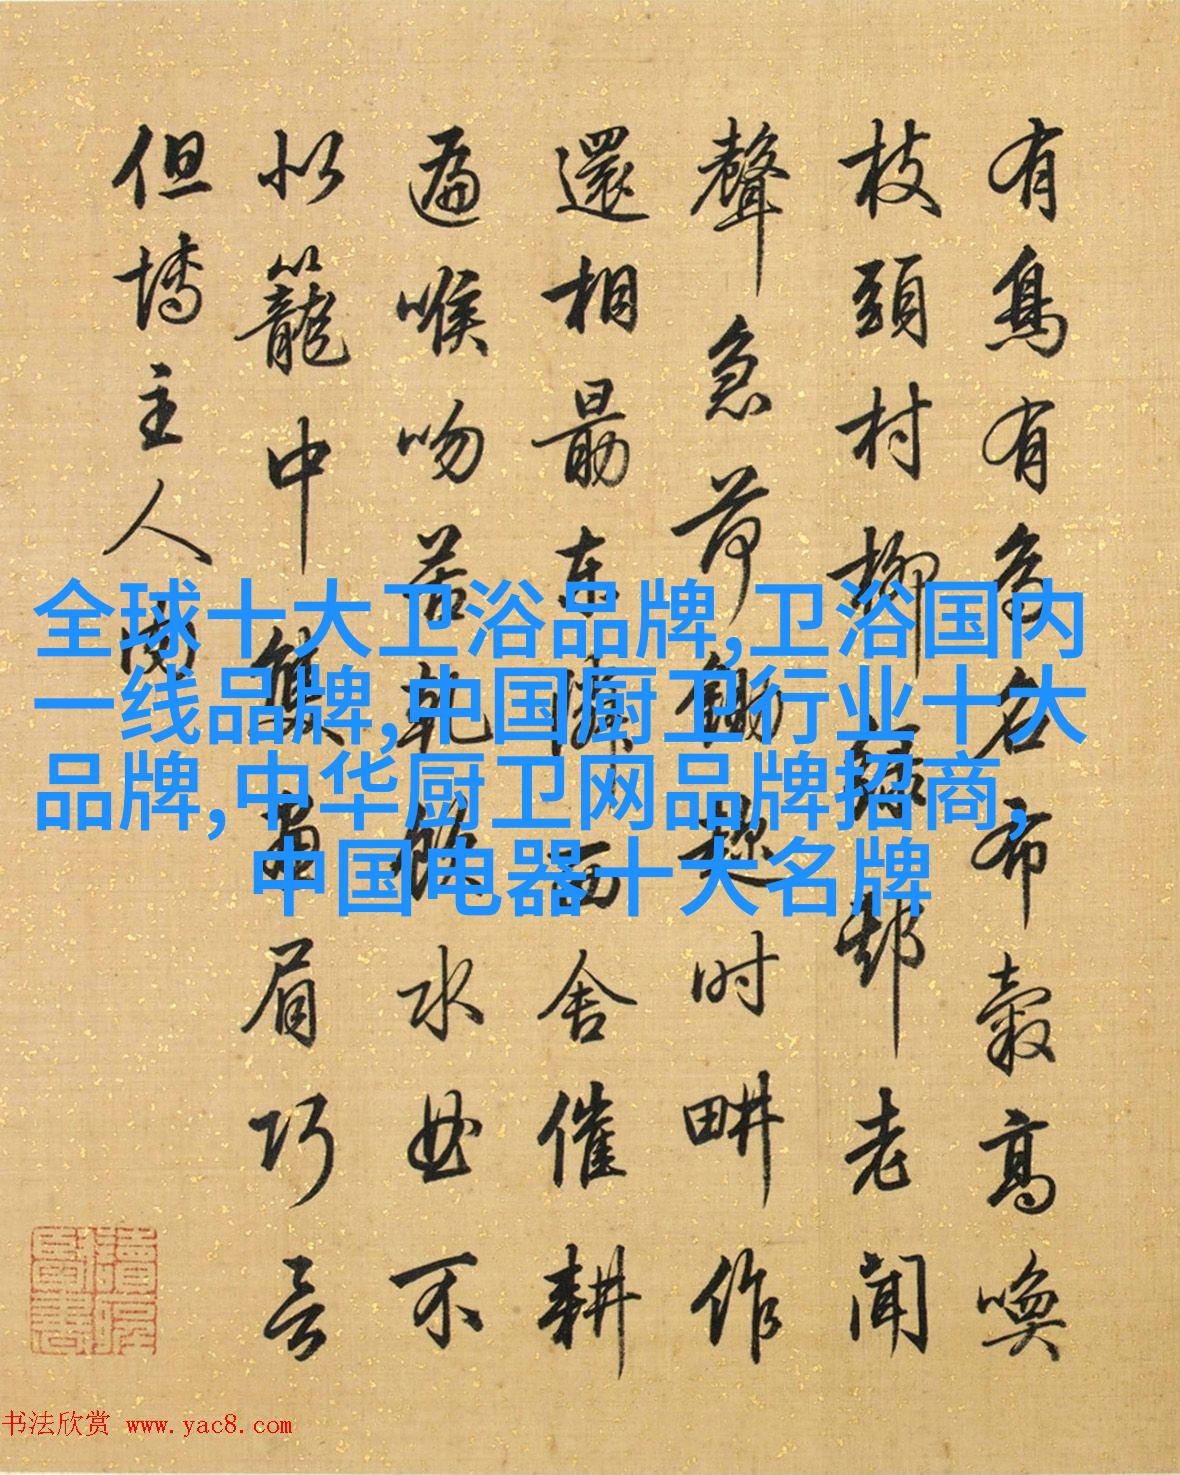 有鳥有鳥名布穀高喚
枝頭村柳綠老聞
聲急荷鋤趁時畊作
還相勗東隣西舍催耕
遍喉吻苦乾飲水不
似籠中畫眉巧言
但博主人
全球十大卫浴品牌,卫浴国内
一线品牌,中国厨卫行业十大
品牌,中华厨卫网品牌招商,
中国电器十大名牌
书法欣赏 www.yac8.com